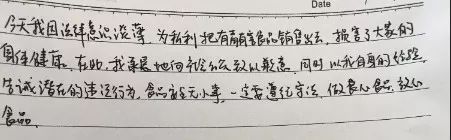 Date
今天我因法律意识淡薄,为私利把有毒有害食品销售出去,损害了大家的
身体健康。在此,我深表地向社会公众致以歉意,同时以我自身的经验,
告诫潜在的违法行为,食品安全无小事,一定要遵纪守法,做良心食品,放心
食品。